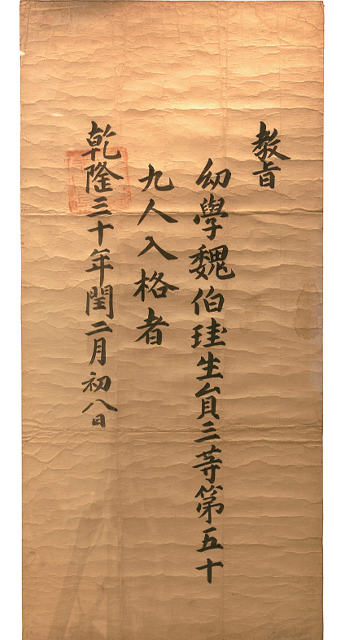 教旨
幼學魏伯珪生員三等第五十
九人入格者
乾隆三十年閏二月初八日